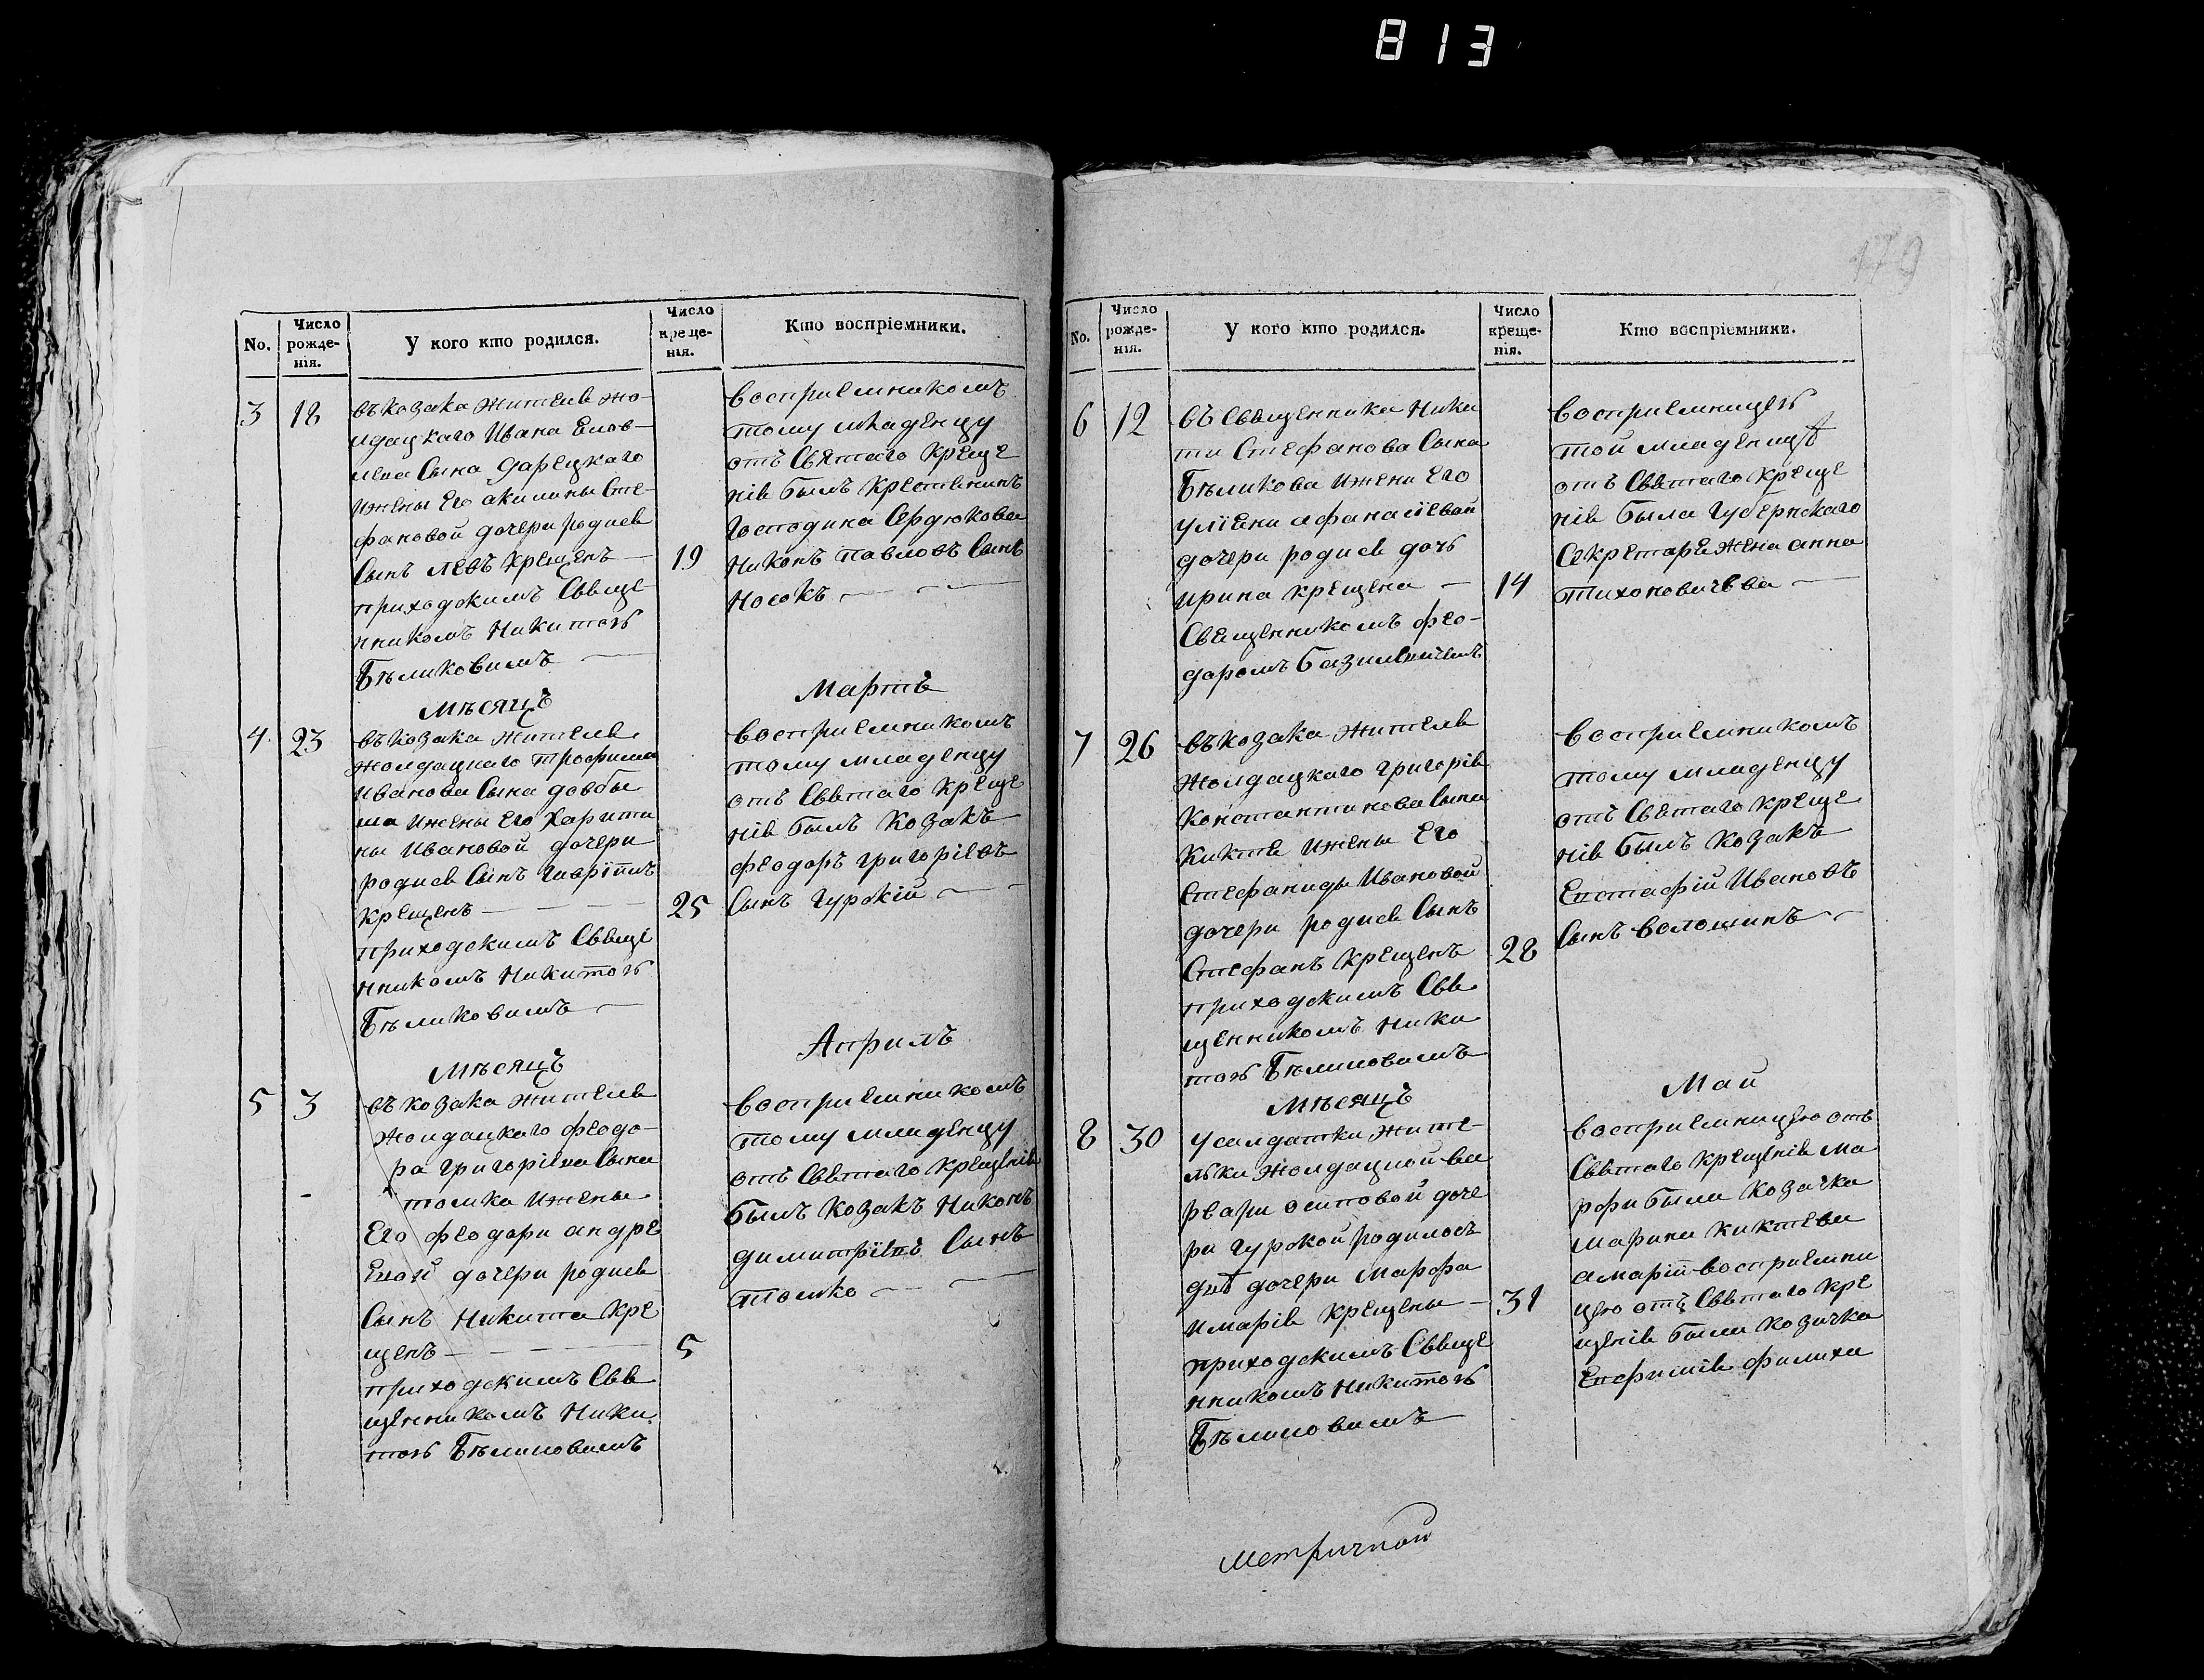 813
179
No.
Число рожде-нія.
У кого кто родился.
Число креще-нія.
Кто воспріемники.
3
18
въ козака жителя жо-
лдацкаго Ивана
сына Дарецкаго
и жены его акилины Сте-
фановой дочери родися
сынъ левъ крещенъ —
приходскимъ свяще
нникомъ Никитою
Бѣликовимъ —
19
восприемникомъ
тому младенцу
отъ Святаго креще
нія былъ крестянинъ
Господина Сердюкова
Никонъ павловъ сынъ
Носокъ —
Мѣсяцъ
Мартъ
4
23
въ козака жителя
жолдацкаго трофима
иванова сына довбы
ша и жены его Харити
ны Ивановой дочери
родися сынъ
крещенъ —
приходскимъ свяще
нникомъ Никитою
Бѣликовимъ —
25
восприемникомъ
тому младенцу
отъ Святаго креще
нія былъ козакъ
феодоръ григоріевъ
сынъ гурскій —
Мѣсяцъ
Априлъ
5
3
въ козака жителя
жолдацкаго феодо-
ра григоріева сына
томка и жены
Его феодори андре
евой дочери родися
сынъ Никита кре
щенъ —
приходскимъ свя
щенникомъ Ники
тою Бѣликовимъ
5
восприемникомъ
тому младенцу
отъ Святаго крещенія
былъ козакъ Никонъ
димитріевъ сынъ
томко —
No.
Число рожде-нія.
У кого кто родился.
Число креще-нія.
Кто воспріемники.
6
12
въ священника Ники
ти Стефанова сына
Бѣликова и жени его
уліени афанасіевой
дочери родися дочь
ирина крещена —
Священникомъ фео-
доромъ Базилевичемъ
14
восприемницею
той младеницѣ
отъ Святаго креще
нія была губернскаго
Секретаря жена анна
тихоновичева —
7
26
въ козака жителя
жолдацкаго григорія
Константинова сына
Киктя и жены его
Стефаниды Ивановой
дочери родися сынъ
Стефанъ крещенъ
приходскимъ свя
щенникомъ Ники
тою Бѣликовимъ
28
восприемникомъ
тому младенцу
отъ Святаго креще
нія былъ козакъ
Евстафій Ивановъ
сынъ волошинъ —
Мѣсяцъ
Май
8
30
у салдатки жите-
лки жолдацкой ва
рвари осиповой доче
ри гурской родилось
двѣ дочери Марфа
и марія крещены —
приходскимъ свяще
нникомъ Никитою
Бѣликовимъ
31
восприемницею отъ
Святаго крещенія ма
рфи была козачка
марина киктева
а маріи восприемни
цею отъ Святаго кре
щенія была козачка
Евфимія филиха
метричной